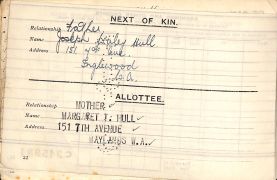 NEXT OF KIN.
Relationship Father
Name Joseph Haley Hull
Address 151 7th Ave.
Inglewood
W.A.
ALLOTTEE.
Relationship MOTHER
Name MARGARET F. HULL
Address 151 7TH AVENUE
MAYLANDS W.A.
22